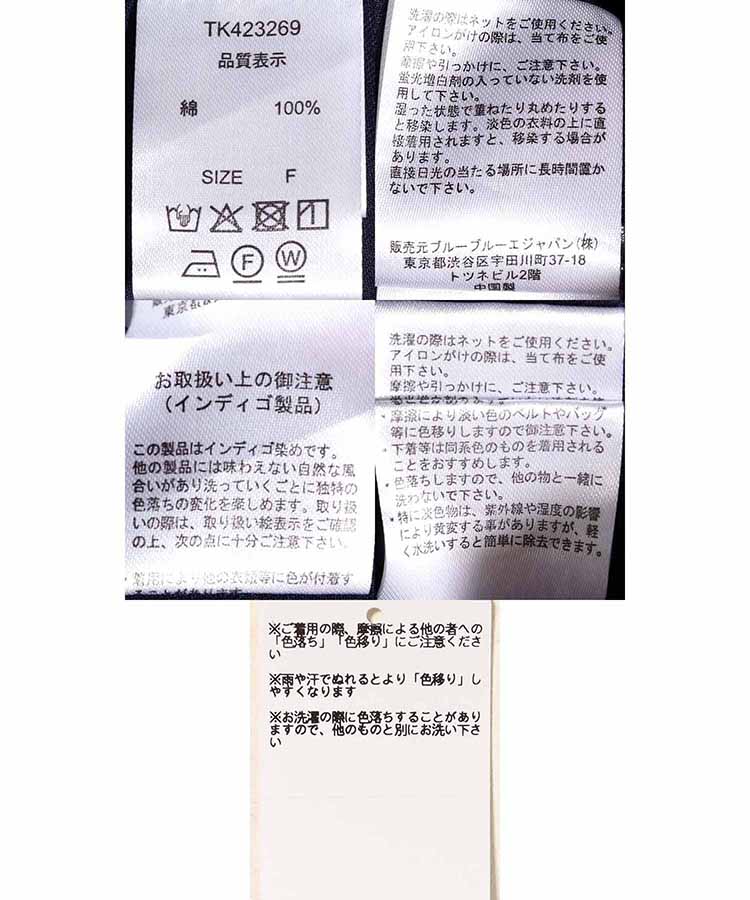 TK423269
品質表示
綿 100%
SIZE F
F W
洗濯の際はネットをご使用ください。
アイロンがけの際は、当て布をご使
用下さい。
摩擦や引っかけに、ご注意下さい。
蛍光増白剤の入っていない洗剤を使
用して下さい。
湿った状態で重ねたり丸めたりする
と移染します。淡色の衣料の上に直
接着用されますと、移染する場合が
あります。
直接日光の当たる場所に長時間置か
ないで下さい。
販売元ブルーブルーエジャパン(株)
東京都渋谷区宇田川町37-18
トツネビル2階
中国製
お取扱い上の御注意
(インディゴ製品)
この製品はインディゴ染めです。
他の製品には味わえない自然な風
合いがあり洗っていくごとに独特の
色落ちの変化を楽しめます。取り扱
いの際は、取り扱い絵表示をご確認
の上、次の点に十分ご注意下さい。
・着用により他の衣類等に色が付着す
ることがあります。
洗濯の際はネットをご使用ください。
アイロンがけの際は、当て布をご使
用下さい。
摩擦や引っかけに、ご注意下さい。
・摩擦により淡い色のベルトやバッグ
等に色移りしますので御注意下さい。
・下着等は同系色のものを着用される
ことをおすすめします。
・色落ちしますので、他の物と一緒に
洗わないで下さい。
・特に淡色物は、紫外線や湿度の影響
により黄変する事がありますが、軽
く水洗いすると簡単に除去できます。
※ご着用の際、摩擦による他の者への
「色落ち」「色移り」にご注意くださ
い
※雨や汗でぬれるとより「色移り」し
やすくなります
※お洗濯の際に色落ちすることがあり
ますので、他のものと別にお洗い下さ
い